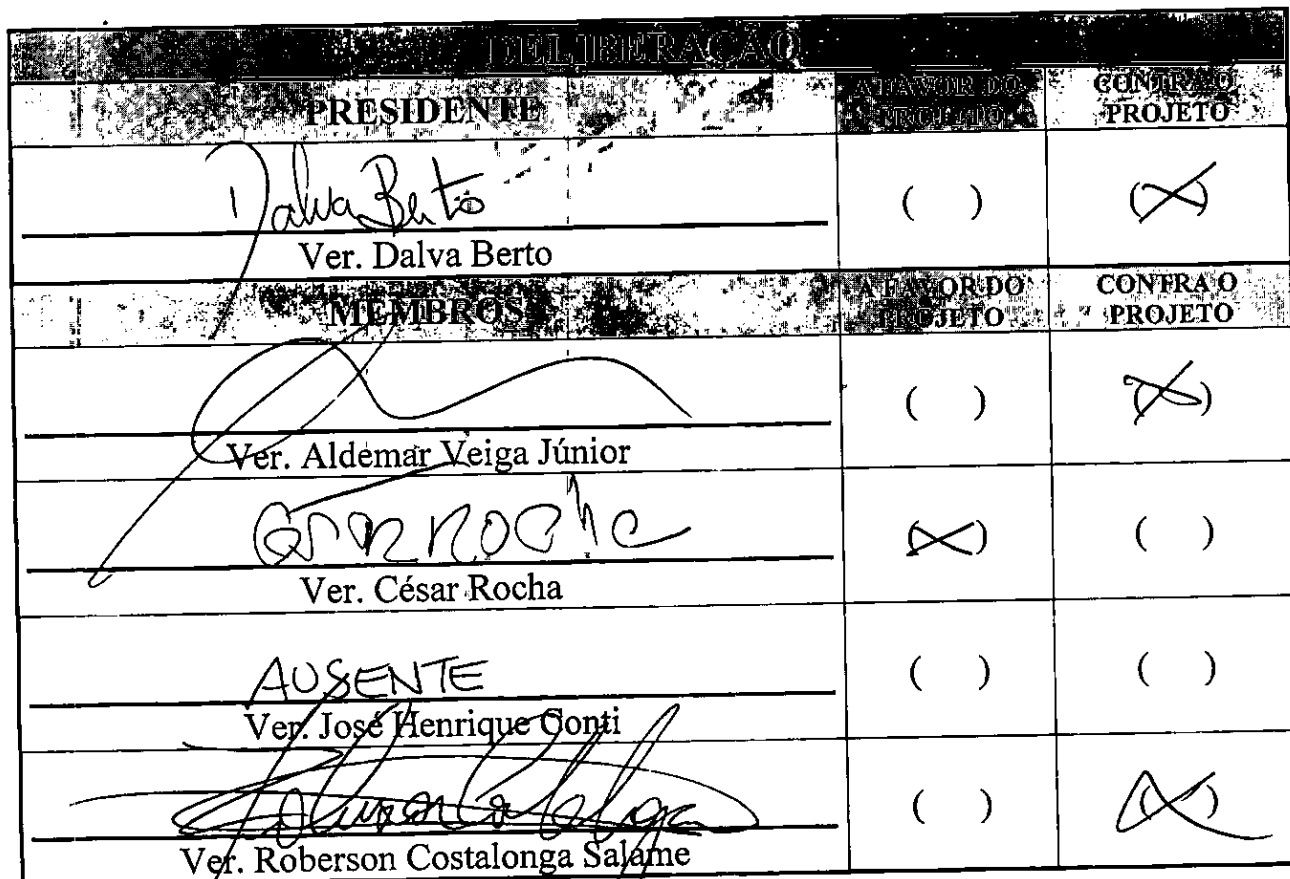 DELIBERAÇÃO
PRESIDENTE A FAVOR DO PROJETO CONTRA O PROJETO
Dalva Berto ( ) (X)
Ver. Dalva Berto
MEMBROS A FAVOR DO PROJETO CONTRA O PROJETO
( ) (X)
Ver. Aldemar Veiga Júnior
Cesar Rocha (X) ( )
Ver. César Rocha
AUSENTE ( ) ( )
Ver. José Henrique Conti
( ) (X)
Ver. Roberson Costalonga Salame